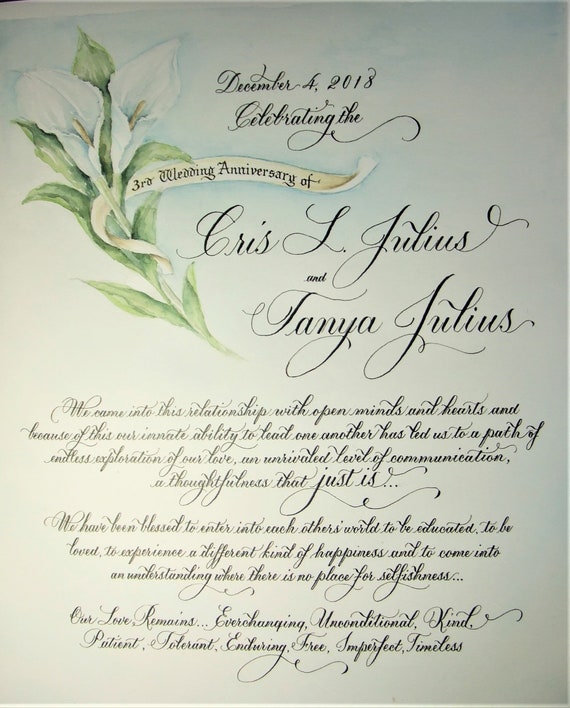 December 4, 2018
Celebrating the
3rd Wedding Anniversary of
Cris L. Julius
and
Tanya Julius
We came into this relationship with open minds and hearts and
because of this our innate ability to lead one another has led us to a path of
endless exploration of our love, an unrivaled level of communication,
a thoughtfulness that just is...
We have been blessed to enter into each others' world to be educated, to be
loved, to experience a different kind of happiness and to come into
an understanding where there is no place for selfishness...
Our Love Remains... Everchanging, Unconditional, Kind,
Patient, Tolerant, Enduring, Free, Imperfect, Timeless